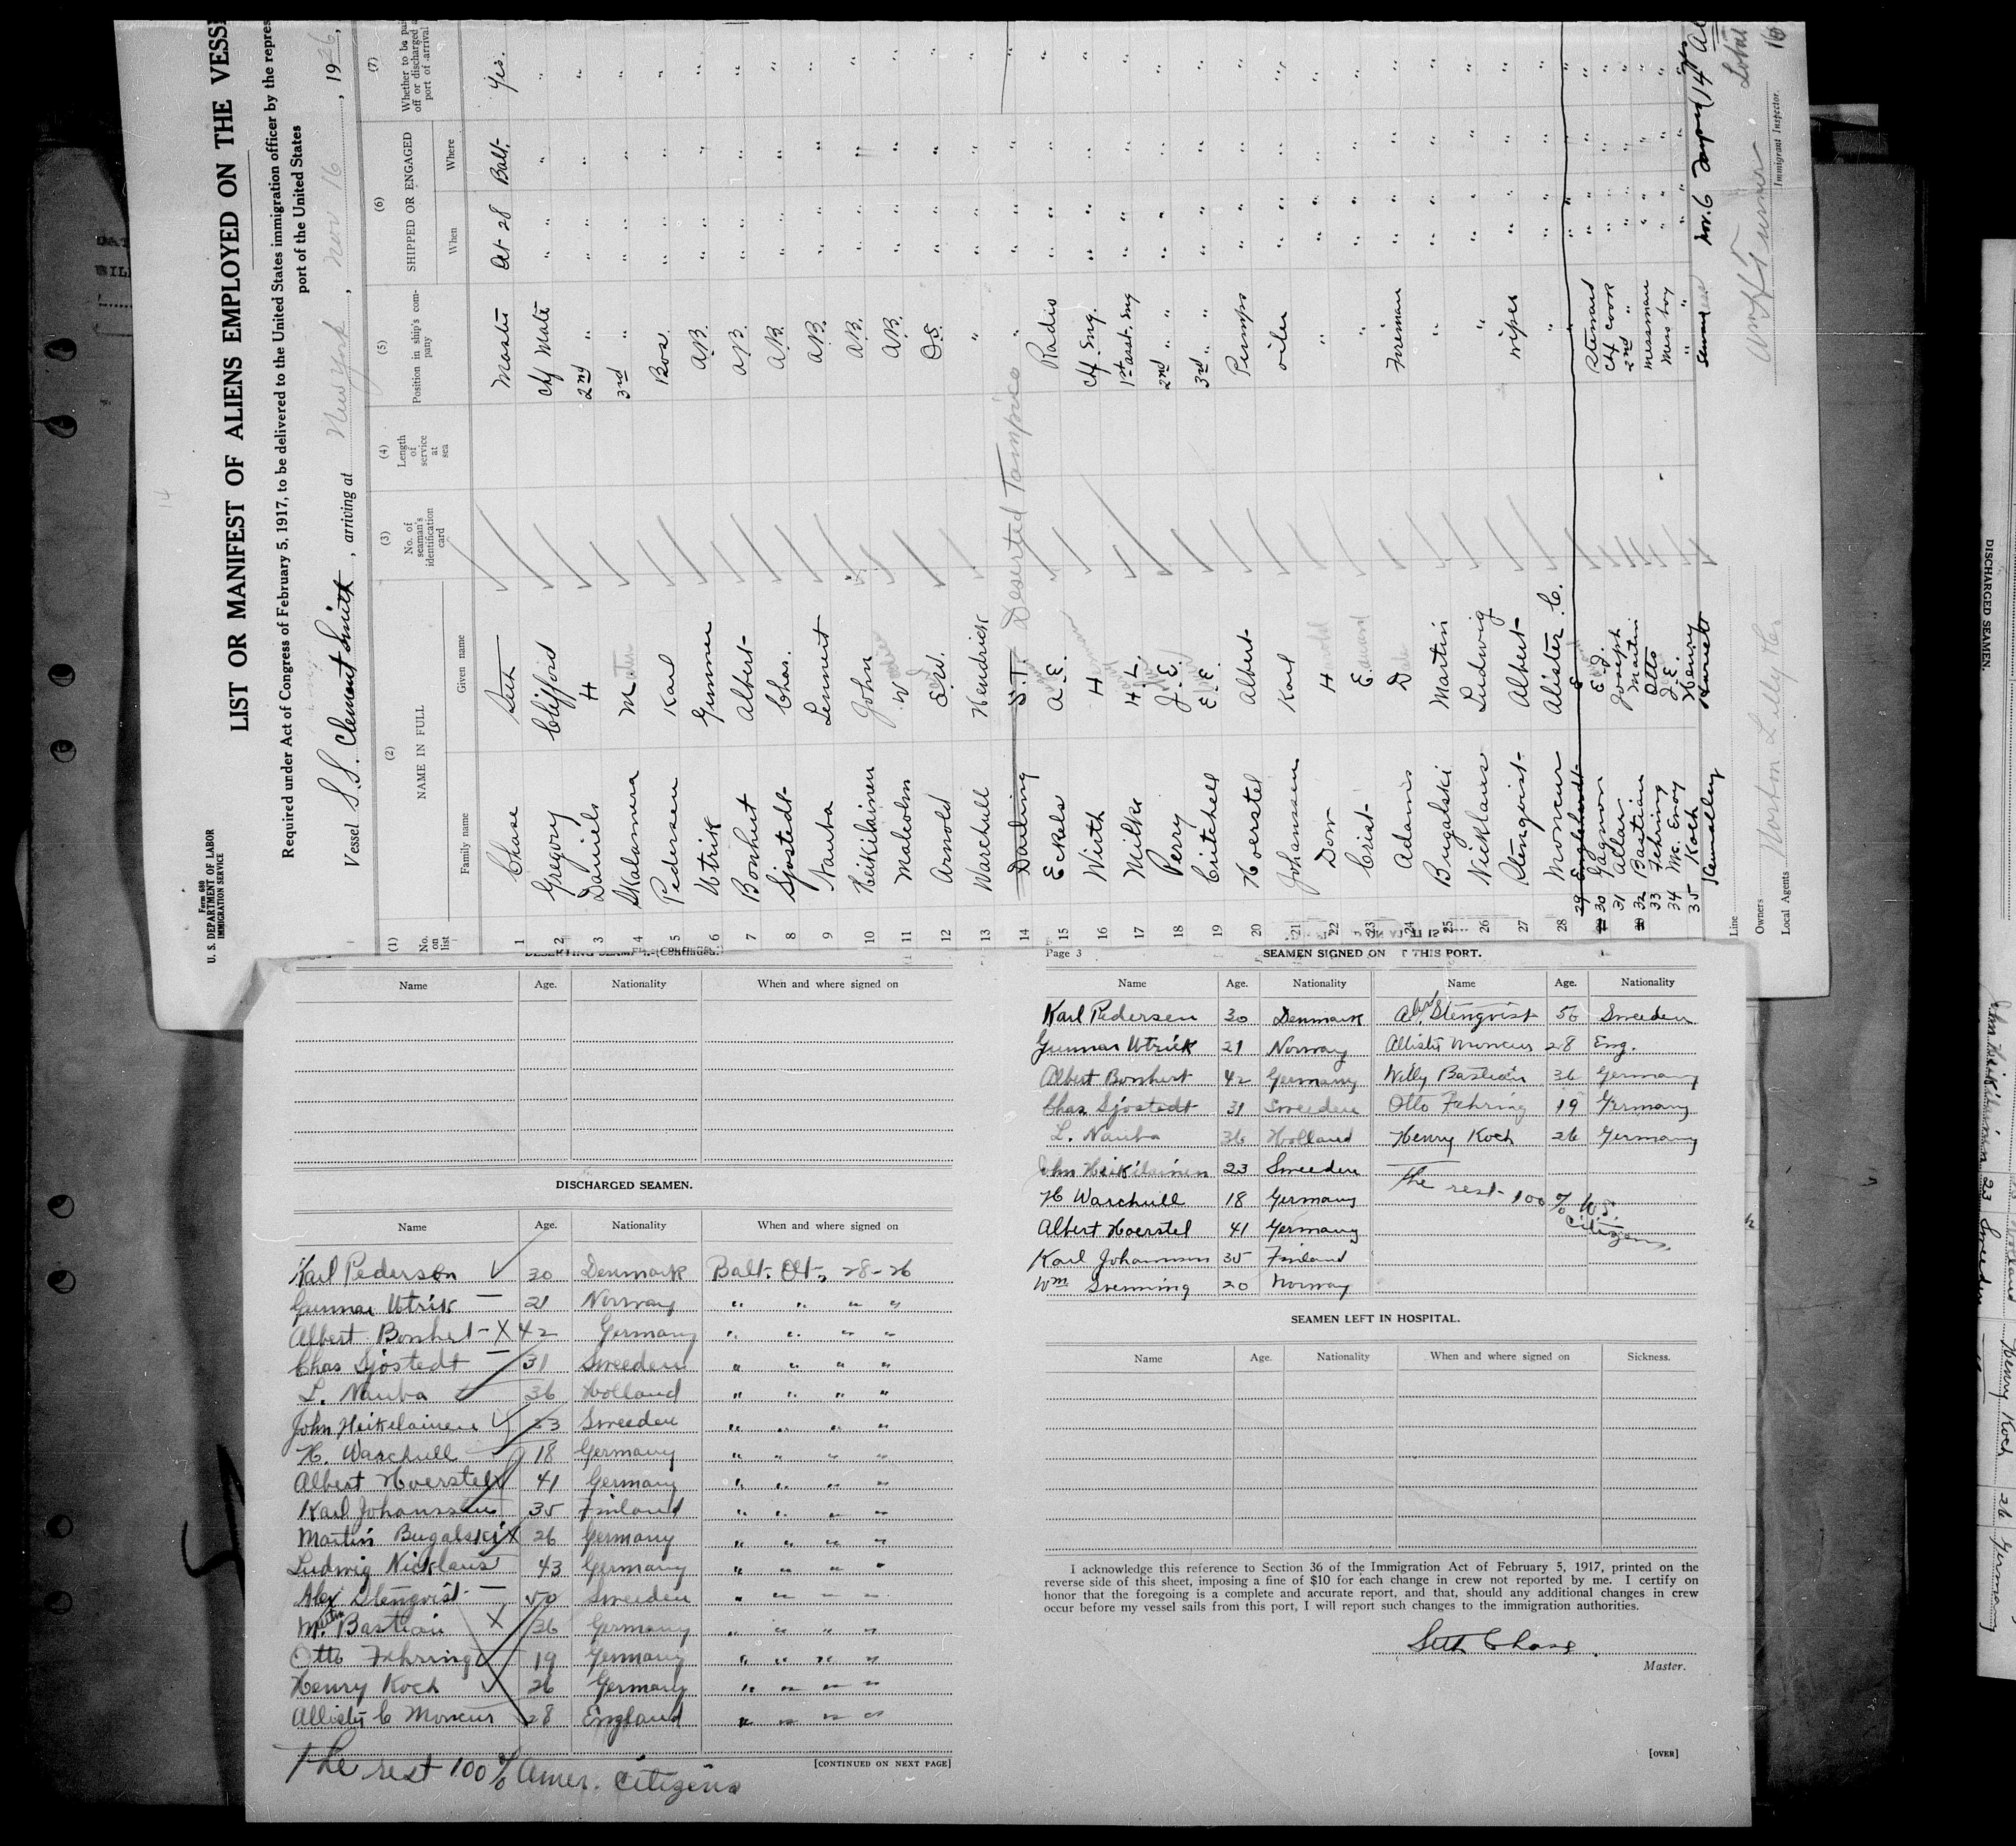 Form 680
U. S. DEPARTMENT OF LABOR
IMMIGRATION SERVICE
LIST OR MANIFEST OF ALIENS EMPLOYED ON THE VESS
Required under Act of Congress of February 5, 1917, to be delivered to the United States immigration officer by the repres
port of the United States
Vessel S.S. Clement Smith, arriving at New York, Nov 16, 1926,
(1) (2) (3) (4) (5) (6) (7)
No. on list NAME IN FULL No. of seaman's identification card Length of service at sea Position in ship's company SHIPPED OR ENGAGED Whether to be pai off or discharged port of arrival
Family name Given name When Where
1 Chase Seth Master Oct 28 Balt. Yes.
2 Gregory Clifford Chf Mate " " " "
3 Daniels H 2nd " " " " "
4 Skalamera M 3rd " " " " "
5 Pedersen Karl Bos. " " " "
6 Utrik Gunner A.B. " " " "
7 Bonhert Albert A.B. " " " "
8 Sjostedt Chas. A.B. " " " "
9 Nauba Lennert A.B. " " " "
10 Heikilainen John A.B. " " " "
11 Malcolm W A.B. " " " "
12 Arnold E.W. O.S. " " " "
13 Warchull Hendrick " " " " "
14 Darling S.T. Deserted Tampico " " " " "
15 Eckels A.E. Radio " " " "
16 Wirth H Chf. Eng. " " " "
17 Milke H.L. 1st asst. Eng " " " "
18 Perry J.E. 2nd " " " " "
19 Critchell E.E. 3rd " " " " "
20 Hoerstel Albert Pumps " " " "
21 Johanssen Karl oiler " " " "
22 Dow H " " " " "
23 Crist E. " " " " "
24 Adams D Fireman " " " "
25 Bugalski Martin " " " " "
26 Nicklaus Ludwig " " " " "
27 Stenqvist Albert wiper " " " "
28 Moncur Alister C. " " " " "
29 Englehardt E " " " " "
30 Gagnon E.J. Steward " " " "
31 Allar Joseph Chf cook " " " "
32 Bastian Martin 2nd " " " " "
33 Fehring Otto messman " " " "
34 Mc. Evoy J.E. Mess boy " " " "
35 Koch Henry " " " " "
Nov. 6 Tampico (14
Line
Owners
Local Agents Norton Lilly Co.
Immigrant Inspector.
Total
DESERTING SEAMEN.-(Continued.)
Name Age. Nationality When and where signed on
DISCHARGED SEAMEN.
Name Age. Nationality When and where signed on
Karl Pedersen 30 Denmark Balt. Oct., 28-26
Gunnar Utrik 21 Norway " " " "
Albert Bonhert X 42 Germany " " " "
Chas Sjostedt 31 Sweeden " " " "
L. Nauba 36 Holland " " " "
John Heikelainen 23 Sweeden " " " "
H. Warchull 18 Germany " " " "
Albert Hoerstel 41 Germany " " " "
Karl Johanssen 35 Finland " " " "
Martin Bugalski X 26 Germany " " " "
Ludwig Nicklaus 43 Germany " " " "
Alex Stenqvist 50 Sweeden " " " "
M. Bastian X 36 Germany " " " "
Otto Fehring 19 Germany " " " "
Henry Koch 26 Germany " " " "
Allister C Moncur 28 England " " " "
[CONTINUED ON NEXT PAGE]
The rest 100% Amer. Citizens
Page 3
SEAMEN SIGNED ON THIS PORT.
Name Age. Nationality Name Age. Nationality
Karl Pedersen 30 Denmark Alb. Stenqvist 50 Sweeden
Gunnar Utrick 21 Norway Allister Moncur 28 Eng.
Albert Bonhert 42 Germany Willy Bastian 36 Germany
Chas Sjostedt 31 Sweeden Otto Fehring 19 Germany
L. Nauba 36 Holland Henry Koch 26 Germany
John Heikilainen 23 Sweeden
H Warchull 18 Germany The rest 100% U.S. Citizens
Albert Hoerstel 41 Germany
Karl Johannsen 35 Finland
Wm Svenning 20 Norway
SEAMEN LEFT IN HOSPITAL.
Name Age. Nationality When and where signed on Sickness.
I acknowledge this reference to Section 36 of the Immigration Act of February 5, 1917, printed on the
reverse side of this sheet, imposing a fine of $10 for each change in crew not reported by me. I certify on
honor that the foregoing is a complete and accurate report, and that, should any additional changes in crew
occur before my vessel sails from this port, I will report such changes to the immigration authorities.
Seth Chase
Master.
[OVER]
DISCHARGED SEAMEN.
John Heikilainen 23 Sweeden
Henry Koch 26 Germany